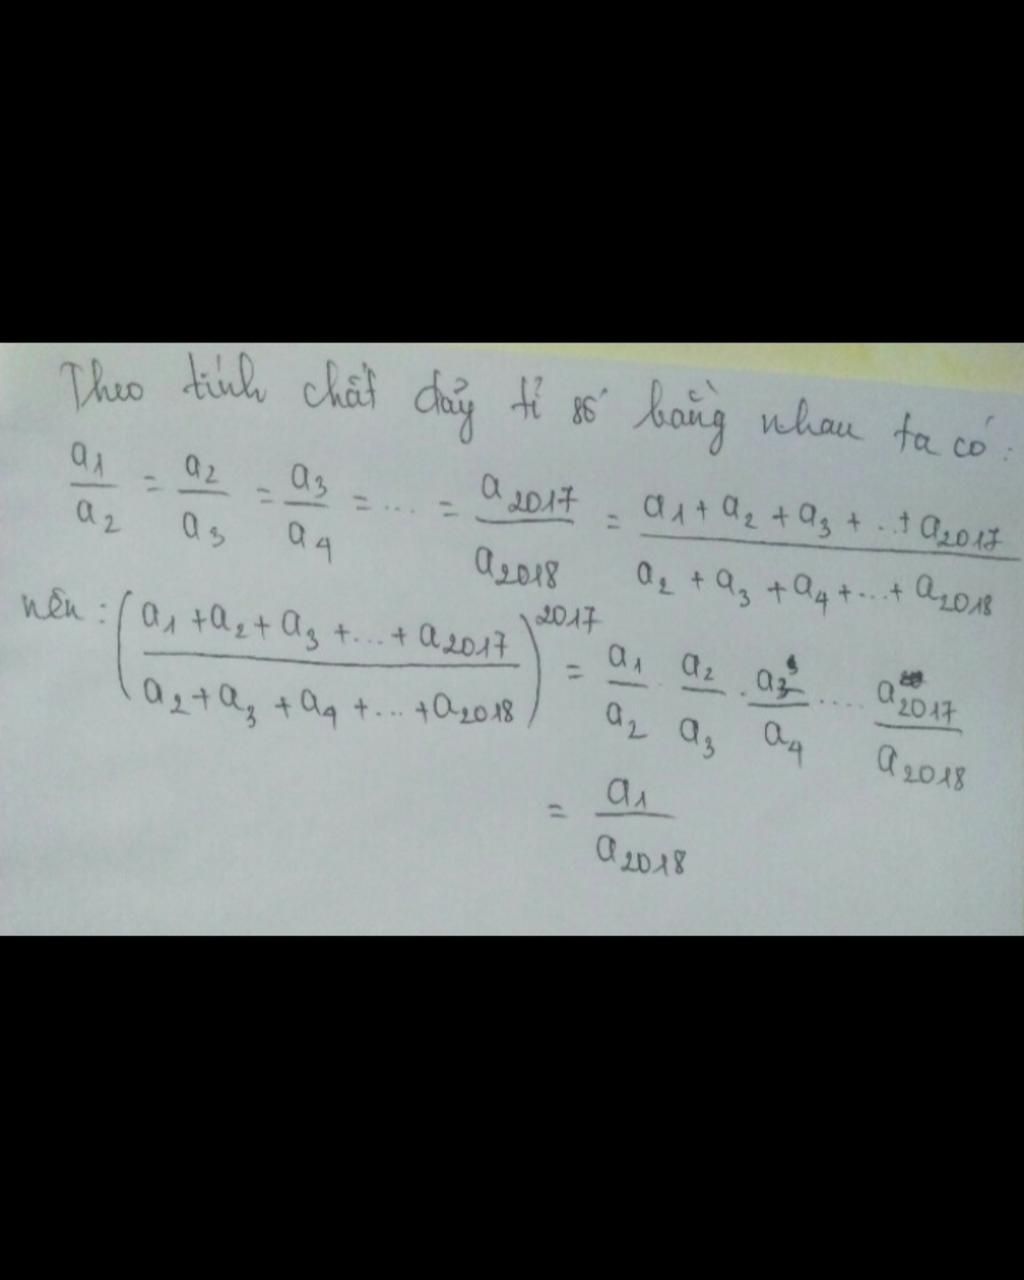 Theo tính chất dãy tỉ số bằng nhau ta có:
a₁/a₂ = a₂/a₃ = a₃/a₄ = ... = a₂₀₁₇/a₂₀₁₈ = (a₁ + a₂ + a₃ + ... + a₂₀₁₇)/(a₂ + a₃ + a₄ + ... + a₂₀₁₈)
nên: ((a₁ + a₂ + a₃ + ... + a₂₀₁₇)/(a₂ + a₃ + a₄ + ... + a₂₀₁₈))²⁰¹⁷ = a₁/a₂ . a₂/a₃ . a₃/a₄ .... a₂₀₁₇/a₂₀₁₈
= a₁/a₂₀₁₈